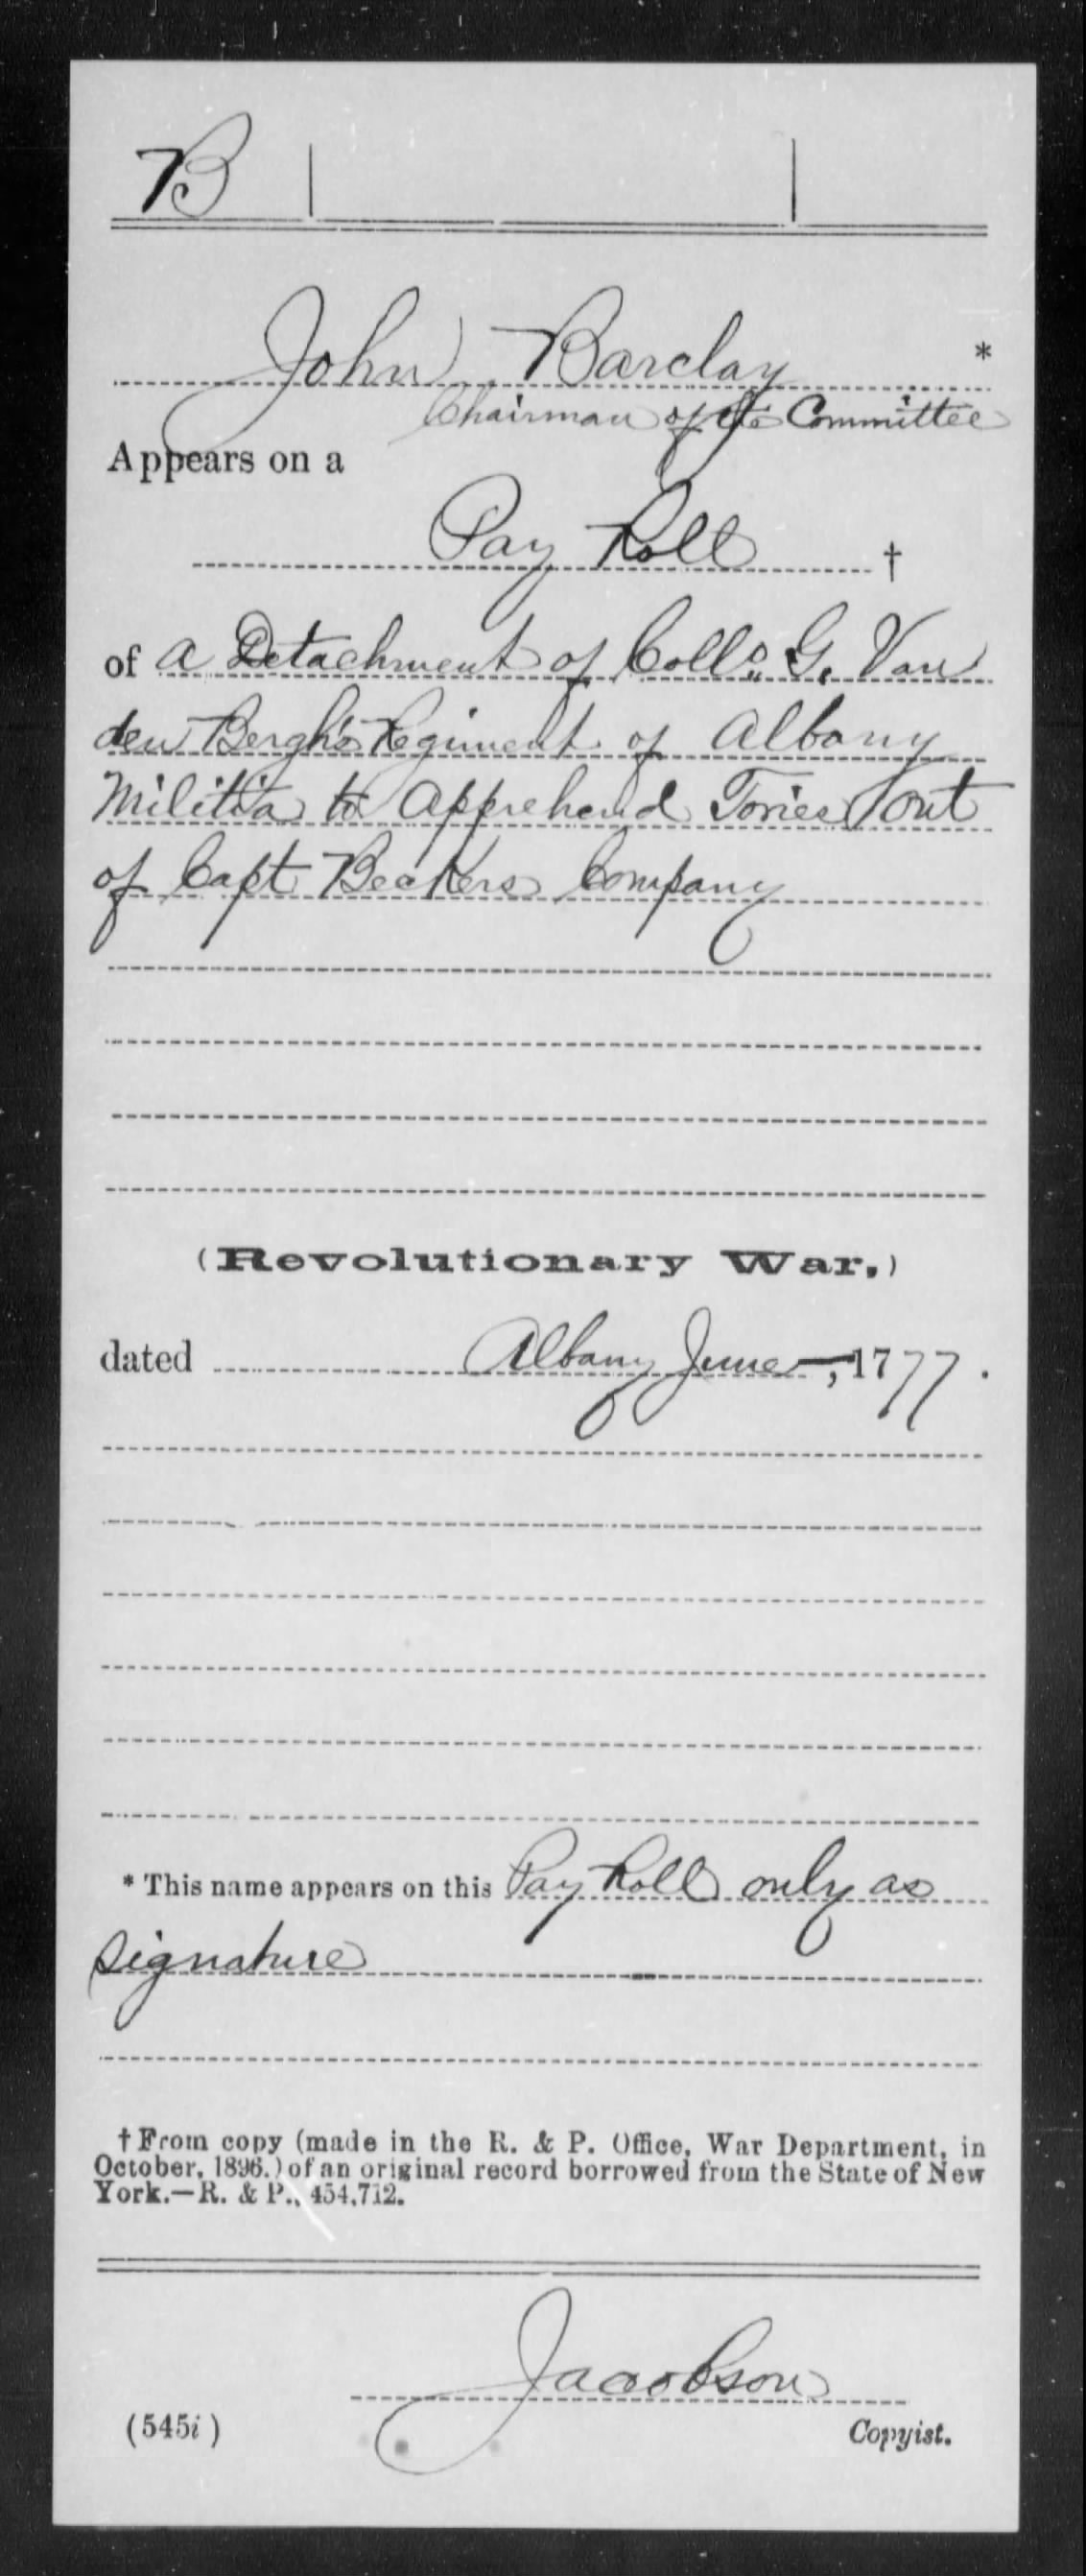 B
John Barclay *
Chairman of the Committee
Appears on a
Pay Roll †
of a Detachment of Coll.o G. Van
den Bergh's Regiment of Albany
Militia to Apprehend Tories out
of Capt Beckers Company
(Revolutionary War.)
dated Albany June —, 1777.
* This name appears on this Pay Roll only as
signature
† From copy (made in the R. & P. Office, War Department, in
October, 1896.) of an original record borrowed from the State of New
York.—R. & P., 454,712.
Jacobson
(545i) Copyist.